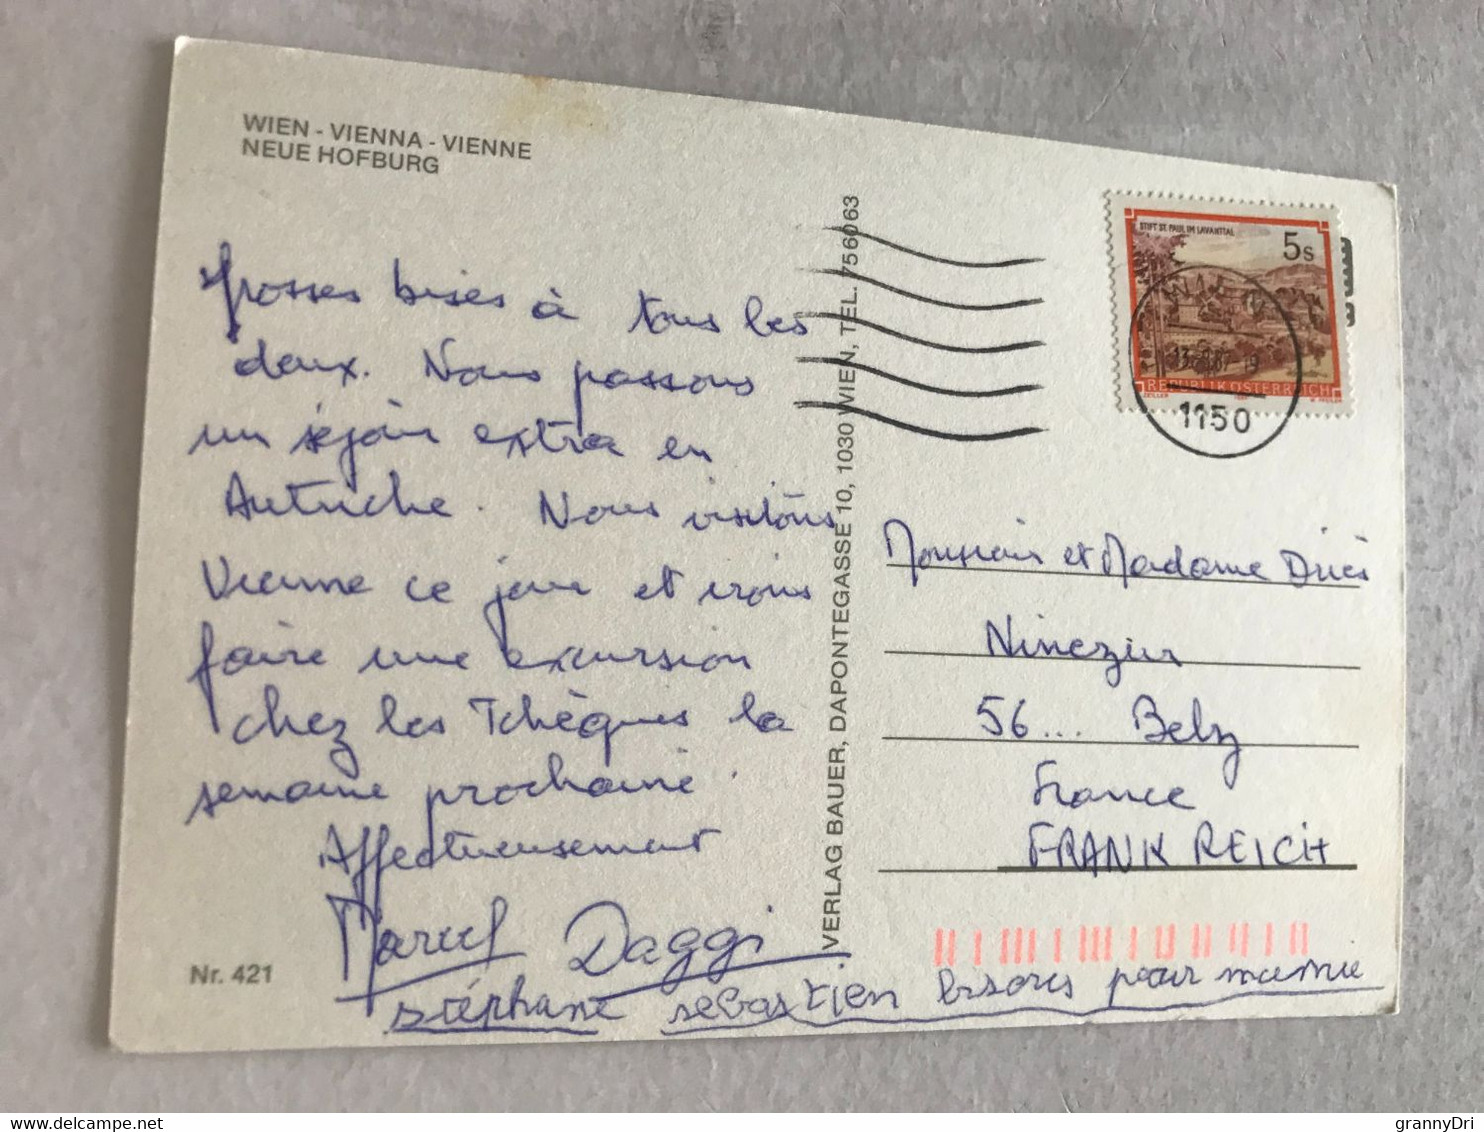 WIEN - VIENNA - VIENNE
NEUE HOFBURG
Grosses bises à tous les
deux. Nous passons
un séjour extra en
Autriche. Nous visitons
Vienne ce jour et irons
faire une excursion
chez les Tchèques la
semaine prochaine.
Affectueusement
Marcel Daggi
stéphane sebastien bisous pour mamie
Nr. 421
VERLAG BAUER, DAPONTEGASSE 10, 1030 WIEN, TEL. 756063
STIFT ST. PAUL IM LAVANTTAL
5s
REPUBLIK ÖSTERREICH
ZEILER
WIEN
1150
Monsieur et Madame
Ninezur
56... Belz
France
FRANKREICH
grannyDri